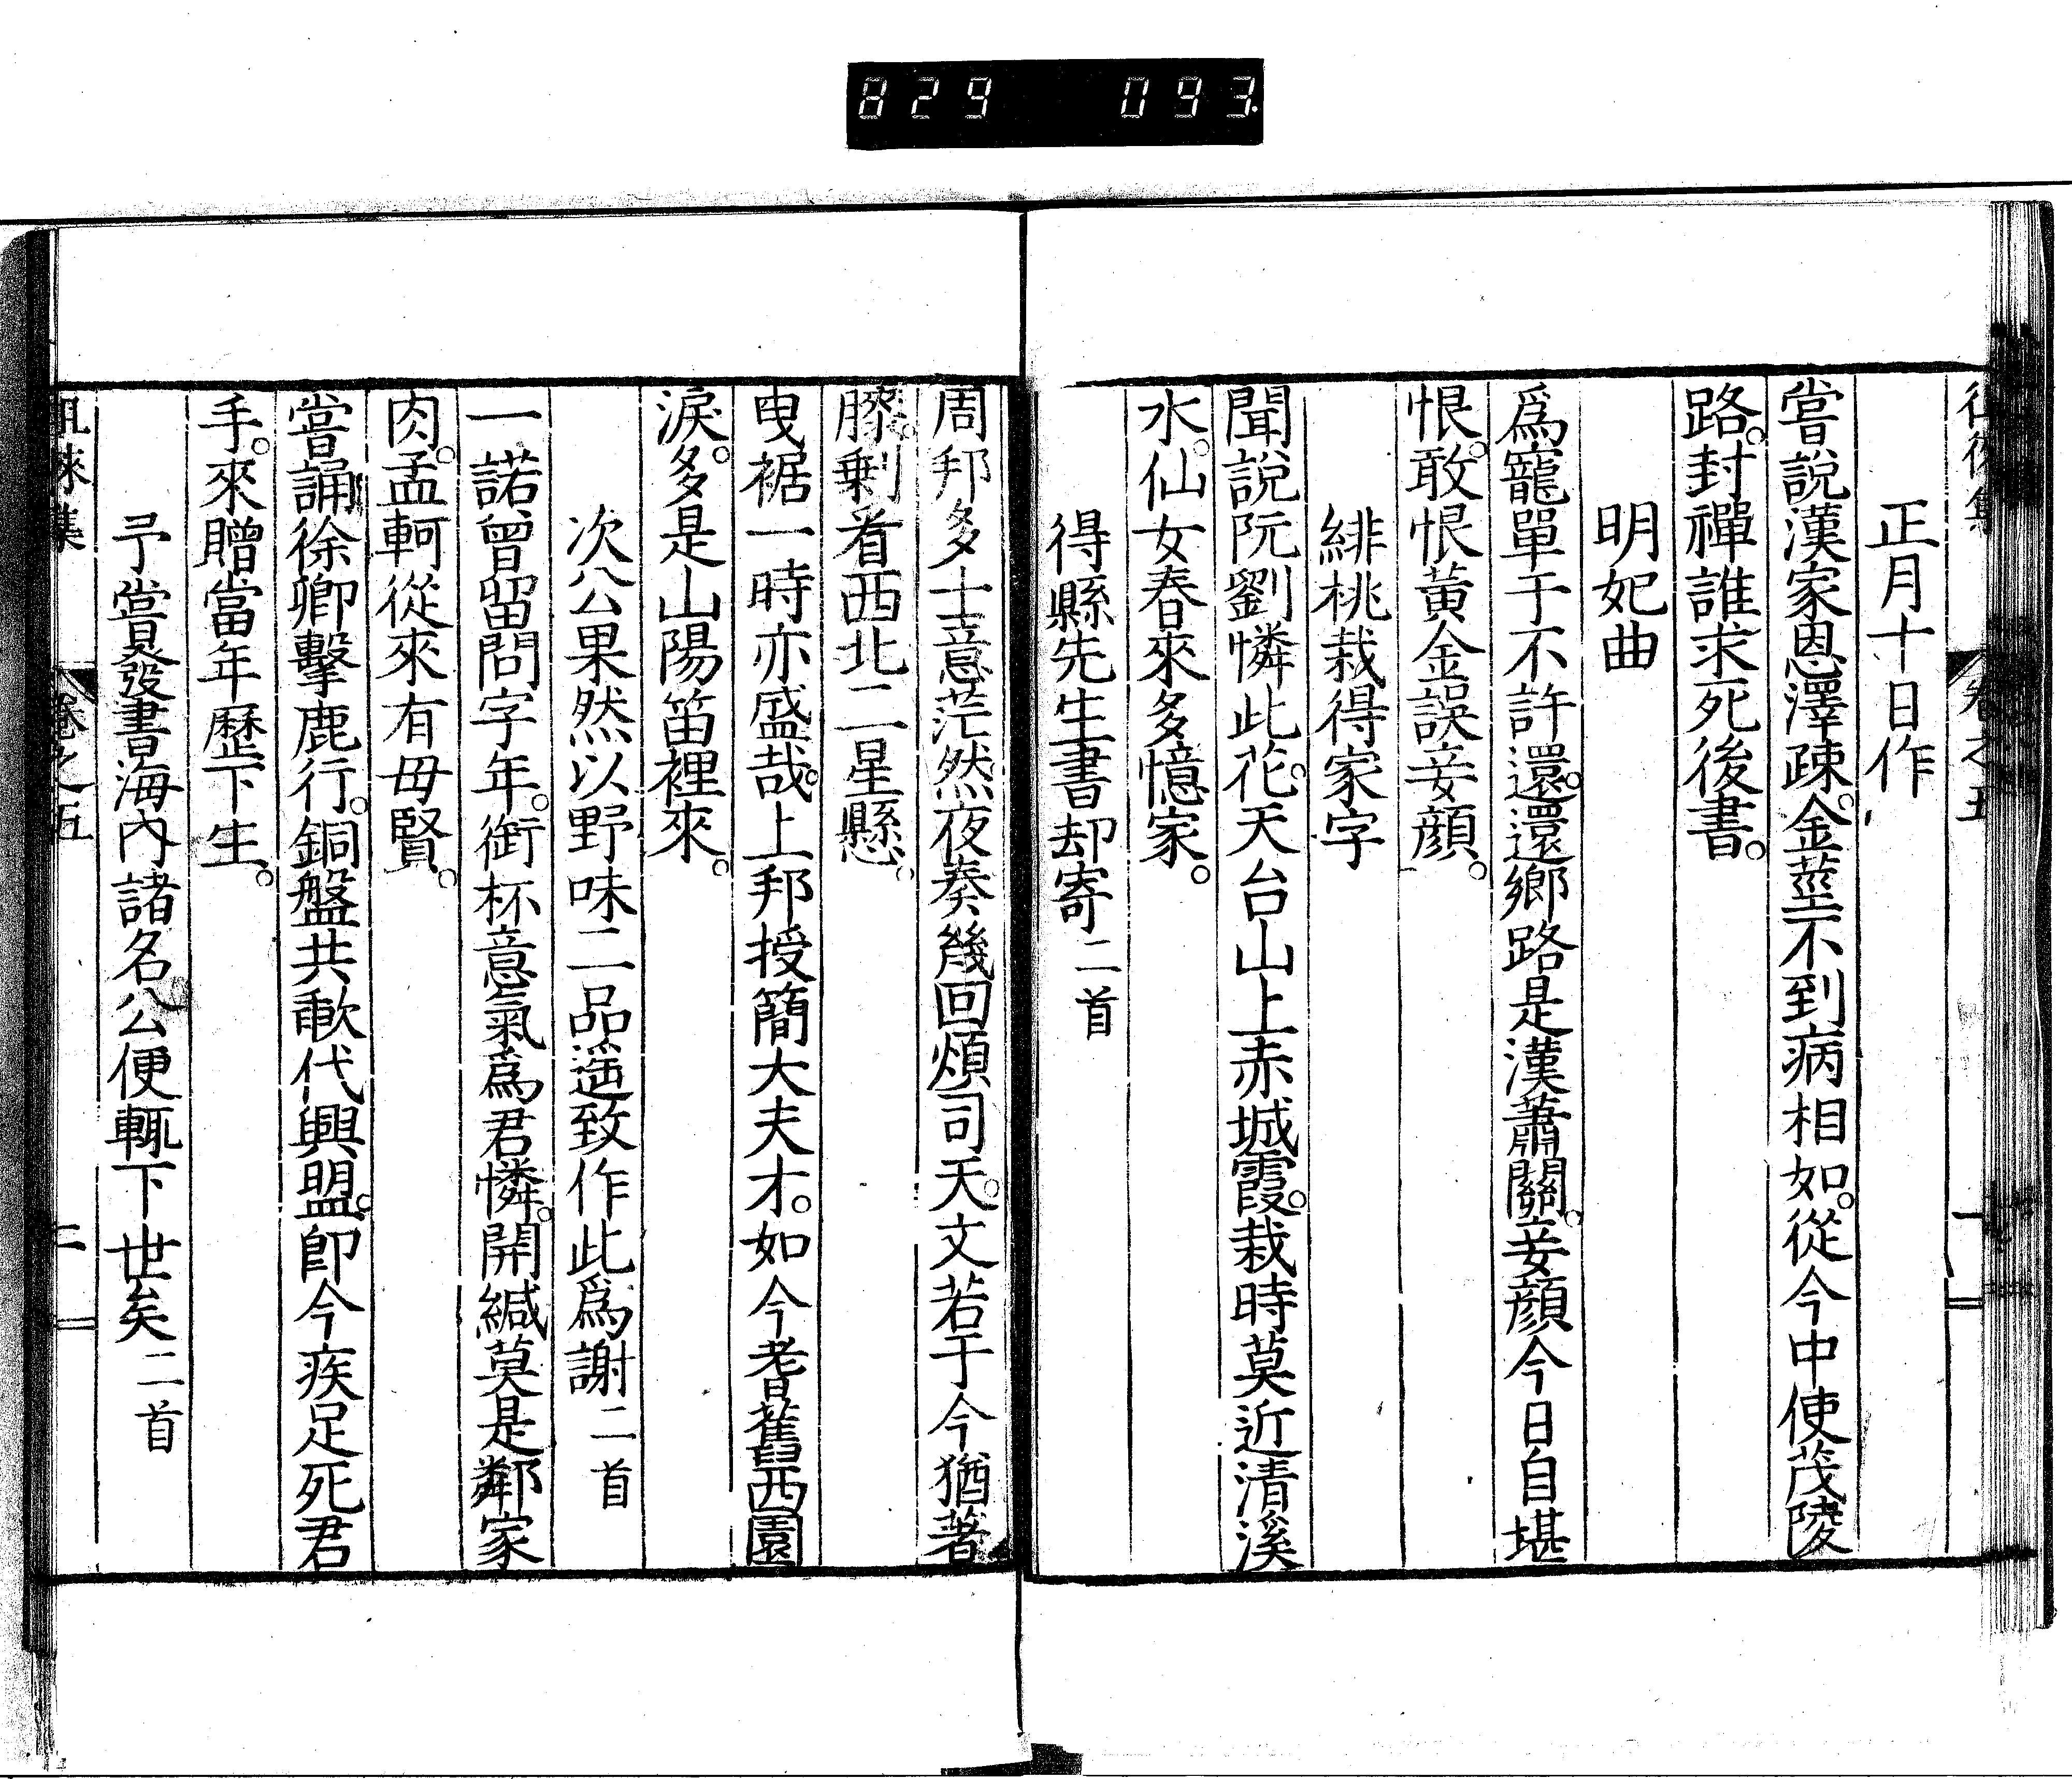 829 093
正月十日作
嘗說漢家恩澤疎。金莖不到病相如。從今中使茂陵
路。封禪誰求死後書。
明妃曲
爲寵單于不許還。還鄉路是漢蕭關。妾顏今日自堪
恨。敢恨黃金誤妾顏。
緋桃栽得家字
聞說阮劉憐此花。天台山上赤城霞。栽時莫近清溪
水。仙女春來多憶家。
得縣先生書却寄二首
周邦多士意茫然夜奏幾回煩司天。文若于今猶著
膝。剩看西北二星懸。
曳裾一時亦盛哉。上邦授簡大夫才。如今耆舊西園
淚。多是山陽笛裡來。
次公果然以野味二品遥致作此爲謝二首
一諾曾留問字年。銜杯意氣爲君憐。開緘莫是鄰家
肉。孟軻從來有母賢。
嘗誦徐卿擊鹿行。銅盤共歃代興盟。卽今疾足死君
手。來贈當年歷下生。
予嘗見發書海內諸名公便輒下世矣二首
徠集 卷之五 二